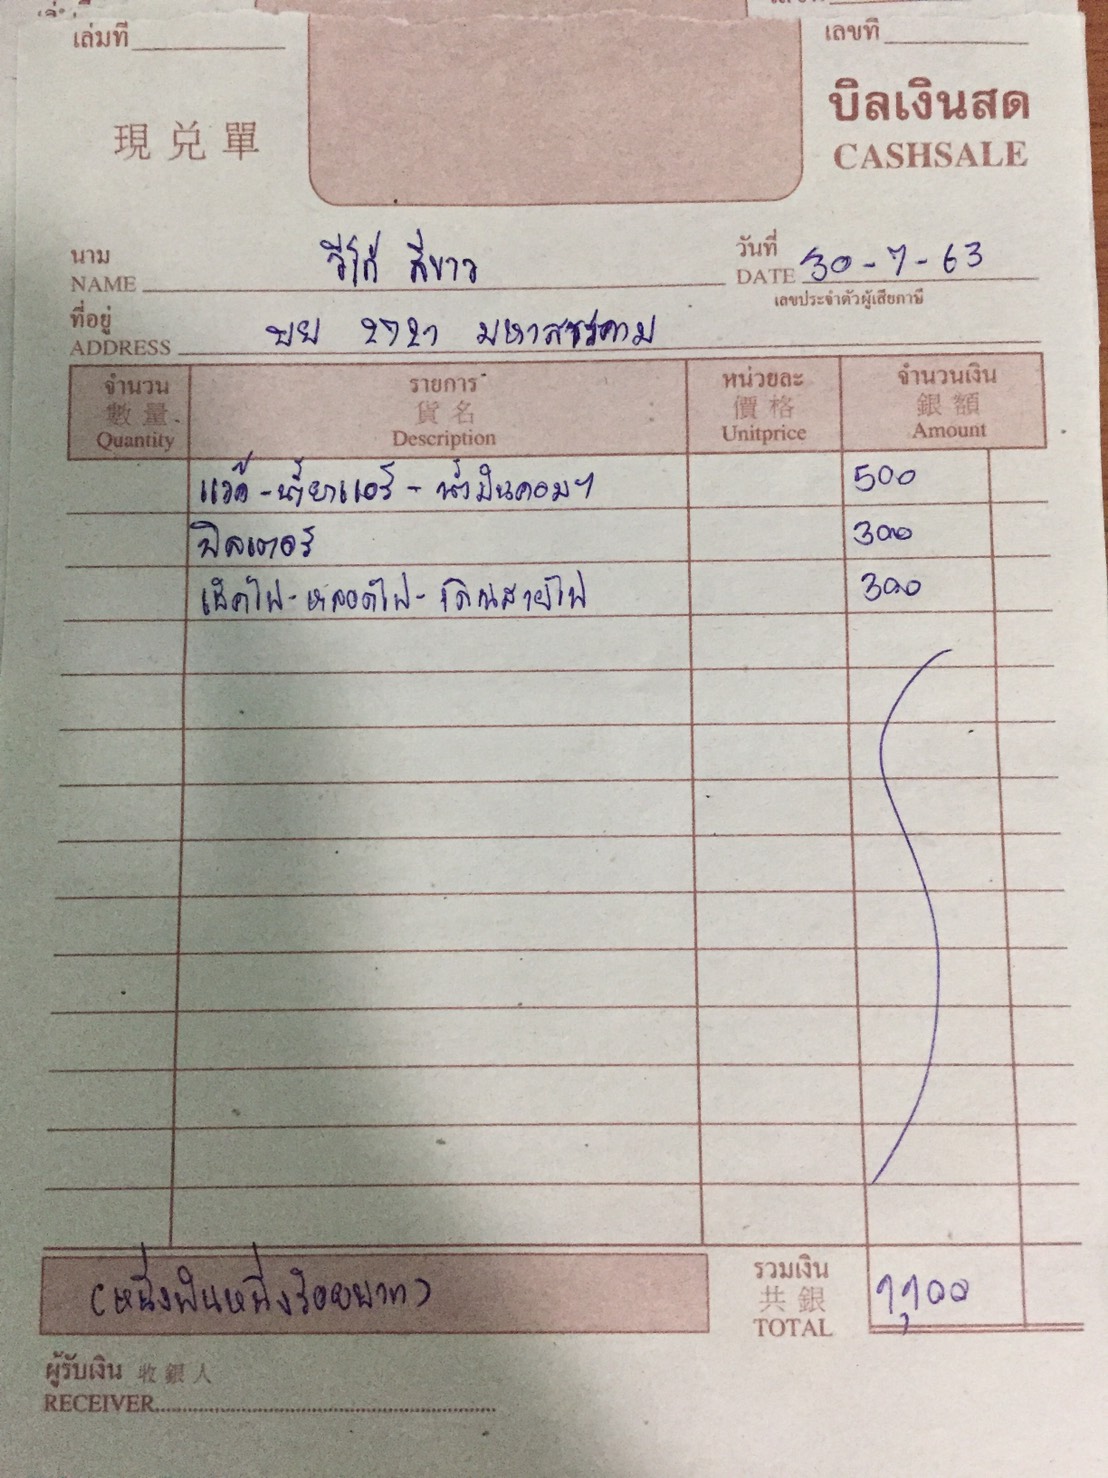 เล่มที่
เลขที่
現兑單
บิลเงินสด
CASHSALE
นาม
NAME
วีโก้ สีขาว
วันที่
DATE 30-7-63
เลขประจำตัวผู้เสียภาษี
ที่อยู่
ADDRESS
2721 มหาสารคาม
จำนวน รายการ หน่วยละ จำนวนเงิน
數量 貨名 價格 銀額
Quantity Description Unitprice Amount
แว๊ค-น้ำยาแอร์-น้ำมันคอมฯ 500
ฟิลเตอร์ 300
เช็คไฟ-หลอดไฟ-เดินสายไฟ 300
(หนึ่งพันหนึ่งร้อยบาท)
รวมเงิน
共銀
TOTAL
1,100
ผู้รับเงิน 收銀人
RECEIVER